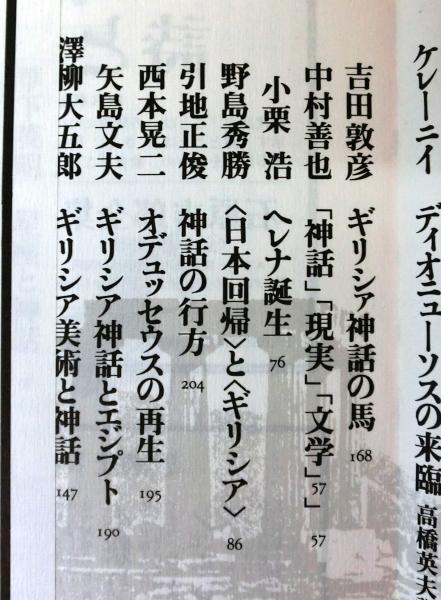 ケレーニイ ディオニューソスの来臨 高橋英夫
吉田敦彦 ギリシァ神話の馬 168
中村善也 「神話」「現実」「文学」」 57 57
小栗 浩 ヘレナ誕生 76
野島秀勝 〈日本回帰〉と〈ギリシア〉 86
引地正俊 神話の行方 204
西本晃二 オデュッセウスの再生 195
矢島文夫 ギリシア神話とエジプト 190
澤柳大五郎 ギリシア美術と神話 147